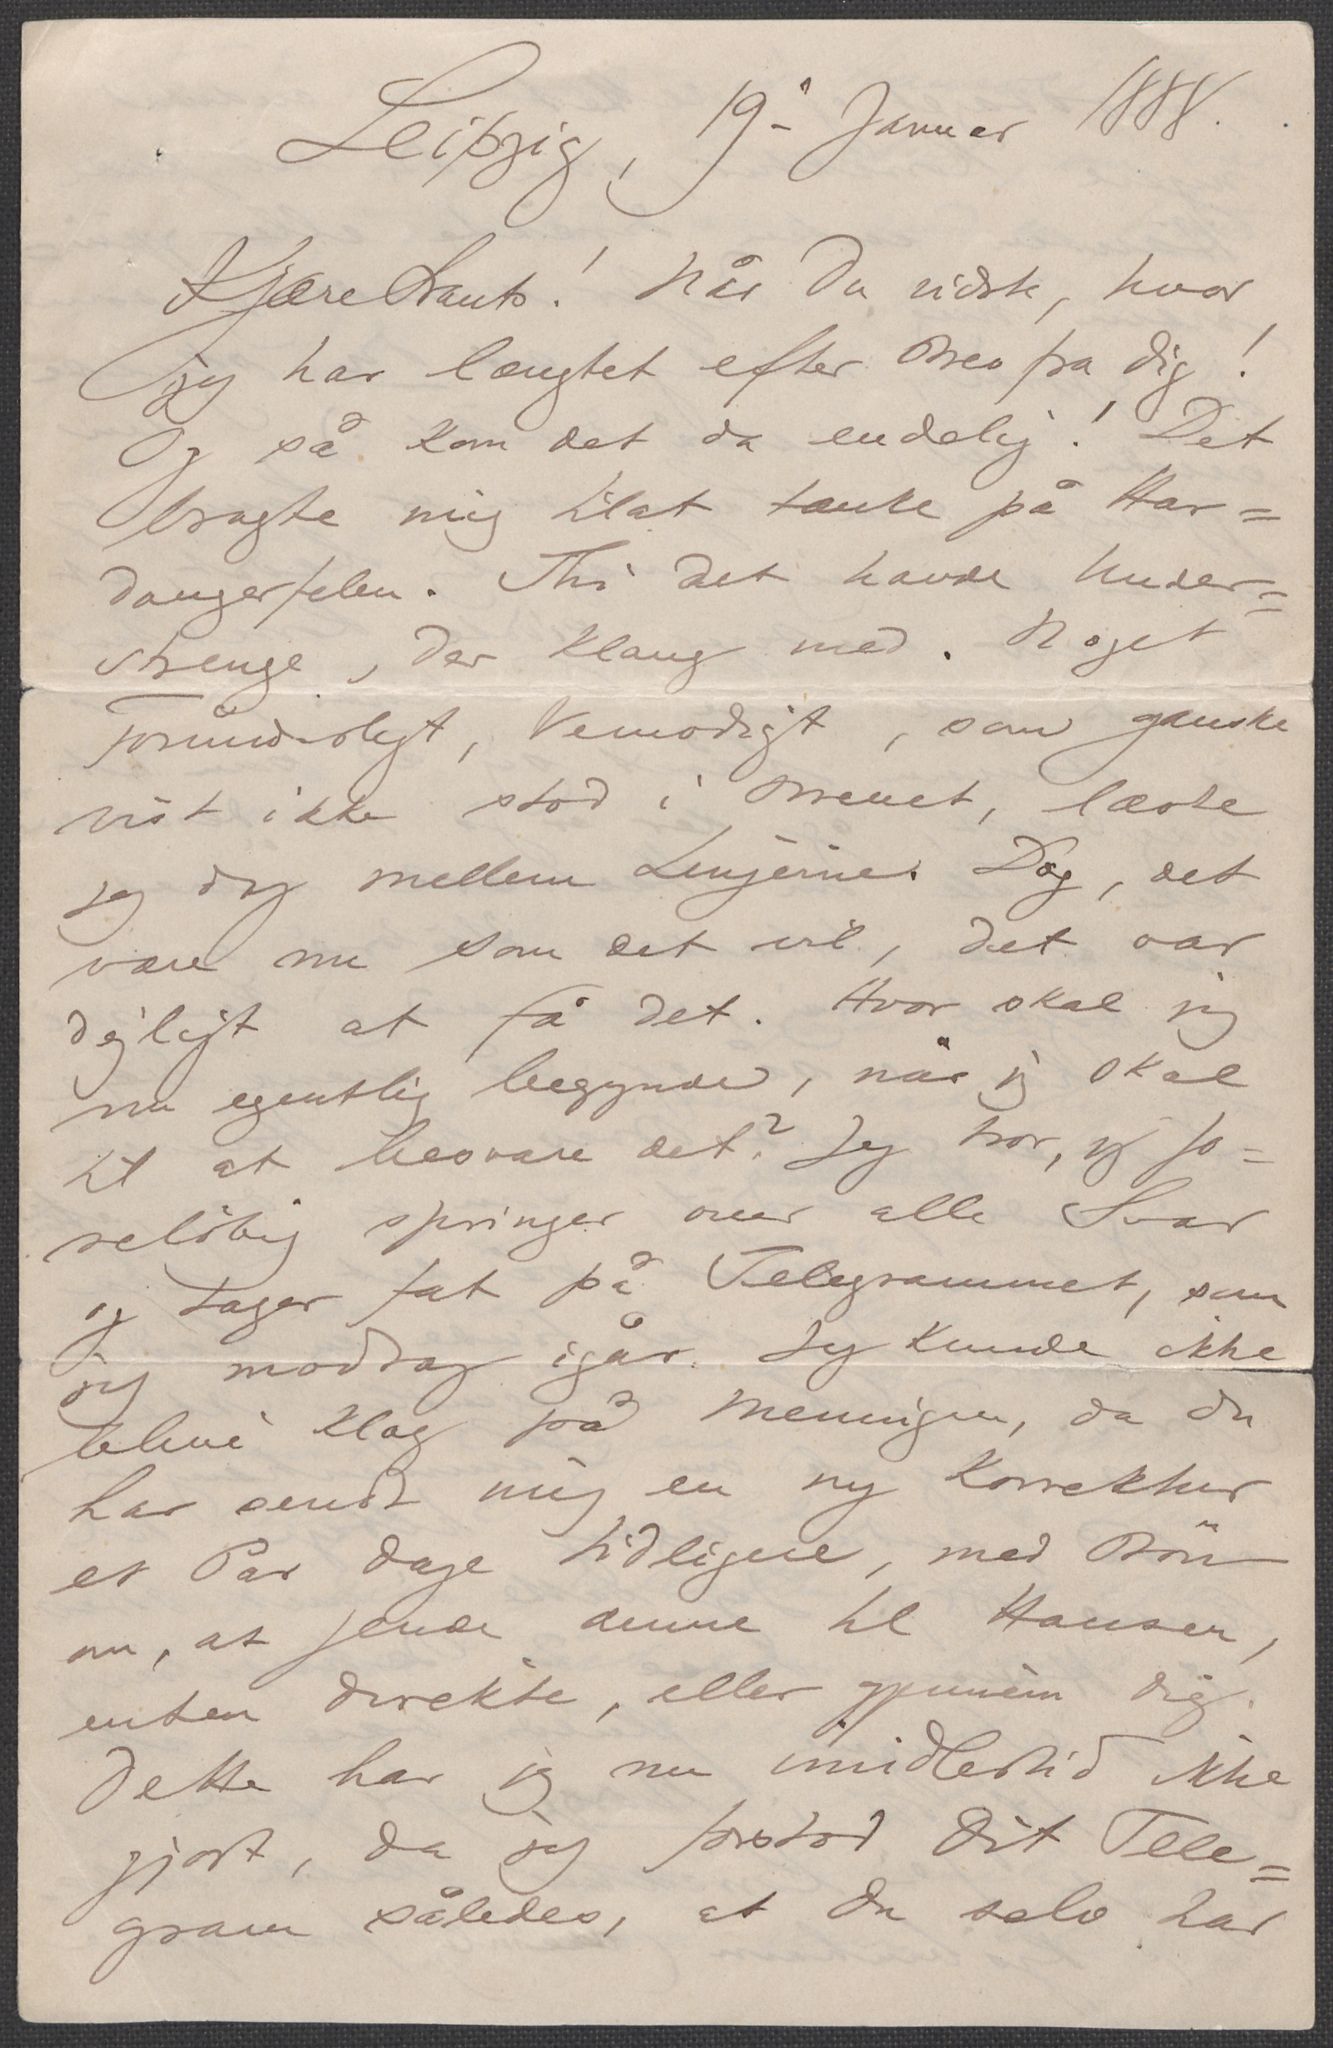 Leipzig, 19. Januar 1888.
Kjære Frants! Når Du vidste, hvor
jeg har længtet efter Brev fra Dig!
Og så kom det da endelig! Det
bragte mig til at tænke på Har=
dangerfelen. Thi det havde Under=
strenge, der klang med. Noget
forunderligt, Vemodigt, som ganske
vist ikke stod i Brevet, læste
jeg dog mellem Linjerne. Dog, det
være nu som det vil, det var
dejligt at få det. Hvor skal jeg
nu egentlig begynde, når jeg skal
til at besvare det? Jeg tror, jeg fo=
reløbig springer over alle Svar
og tager fat på Telegrammet, som
jeg modtog igår. Jeg kunde ikke
blive klog på Meningen, da Du
har sendt mig en ny Korrektur
et Par Dage tidligere, med Bön
om, at sende denne til Hansen,
enten direkte, eller gjennem Dig.
Dette har jeg nu imidlertid ikke
gjort, da jeg forstod Dit Tele=
gram således, at Du selv har